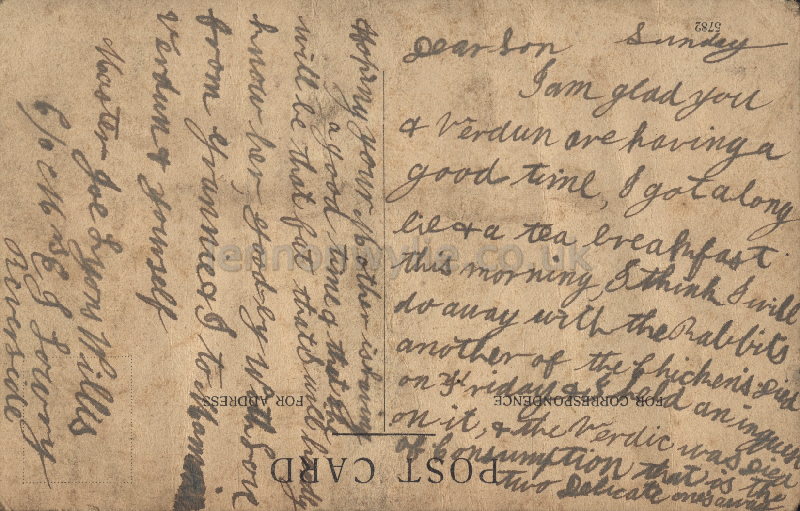 Dear Son Sunday
I am glad you
& Verdun are having a
good time, I got a long
lie & a tea breakfast
this morning, I think I will
do away with the Rabbits
another of the Chickens Died
on Friday & I held an inquest
on it, & the Verdic was Died
of Consumption that is the
two Delicate ones away
hoping your Mother is having
a good time & that she
will be that fat that I will hardly
know her, good by with love
from Grannie & I to Mammie
Verdun & yourself
Master Joe Lyons Willis
C/o Mrs E J Lowry
Riverside
POST CARD
FOR ADDRESS
FOR CORRESPONDENCE
5782
lennonwylie.co.uk